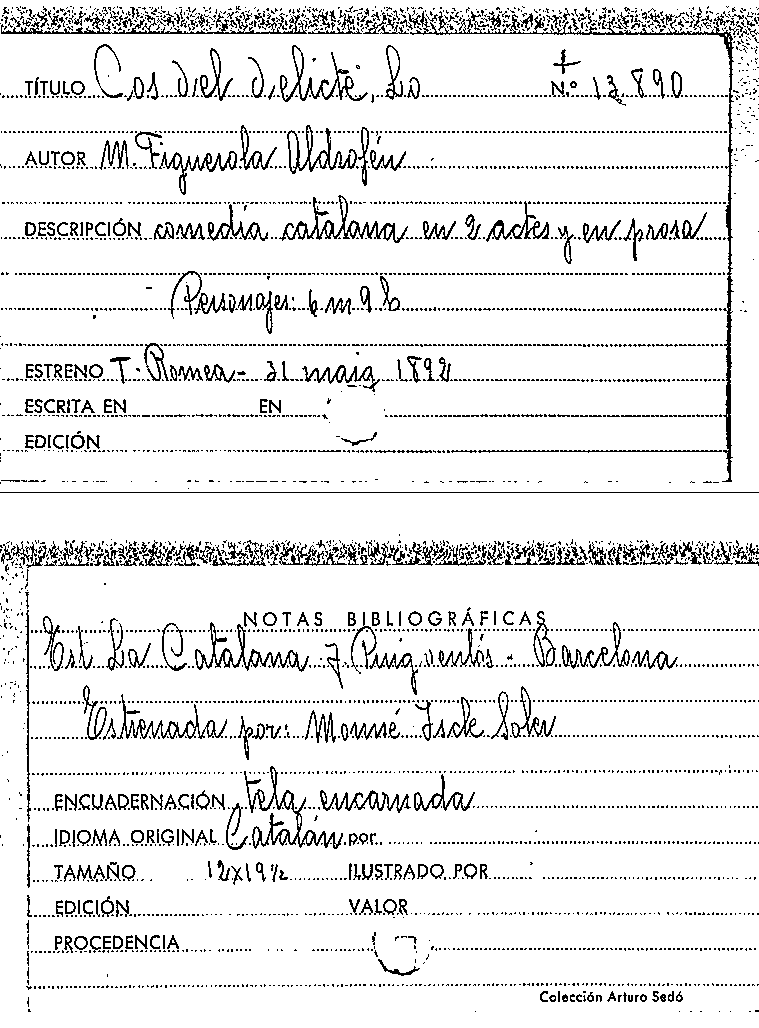 TÍTULO Cos del delicte, Lo N.º 13.890
AUTOR M. Figuerola Aldrofén
DESCRIPCIÓN comedia catalana en 2 actes y en prosa
Personajes: 6 m 9 h
ESTRENO T. Romea - 31 maig 1892
ESCRITA EN EN
EDICIÓN
NOTAS BIBLIOGRÁFICAS
Est La Catalana J. Puigventós - Barcelona
Estrenada por: Monné Soler
ENCUADERNACIÓN tela encarnada
IDIOMA ORIGINAL Catalán por
TAMAÑO 12x19½ ILUSTRADO POR
EDICIÓN VALOR
PROCEDENCIA
Colección Arturo Sedó